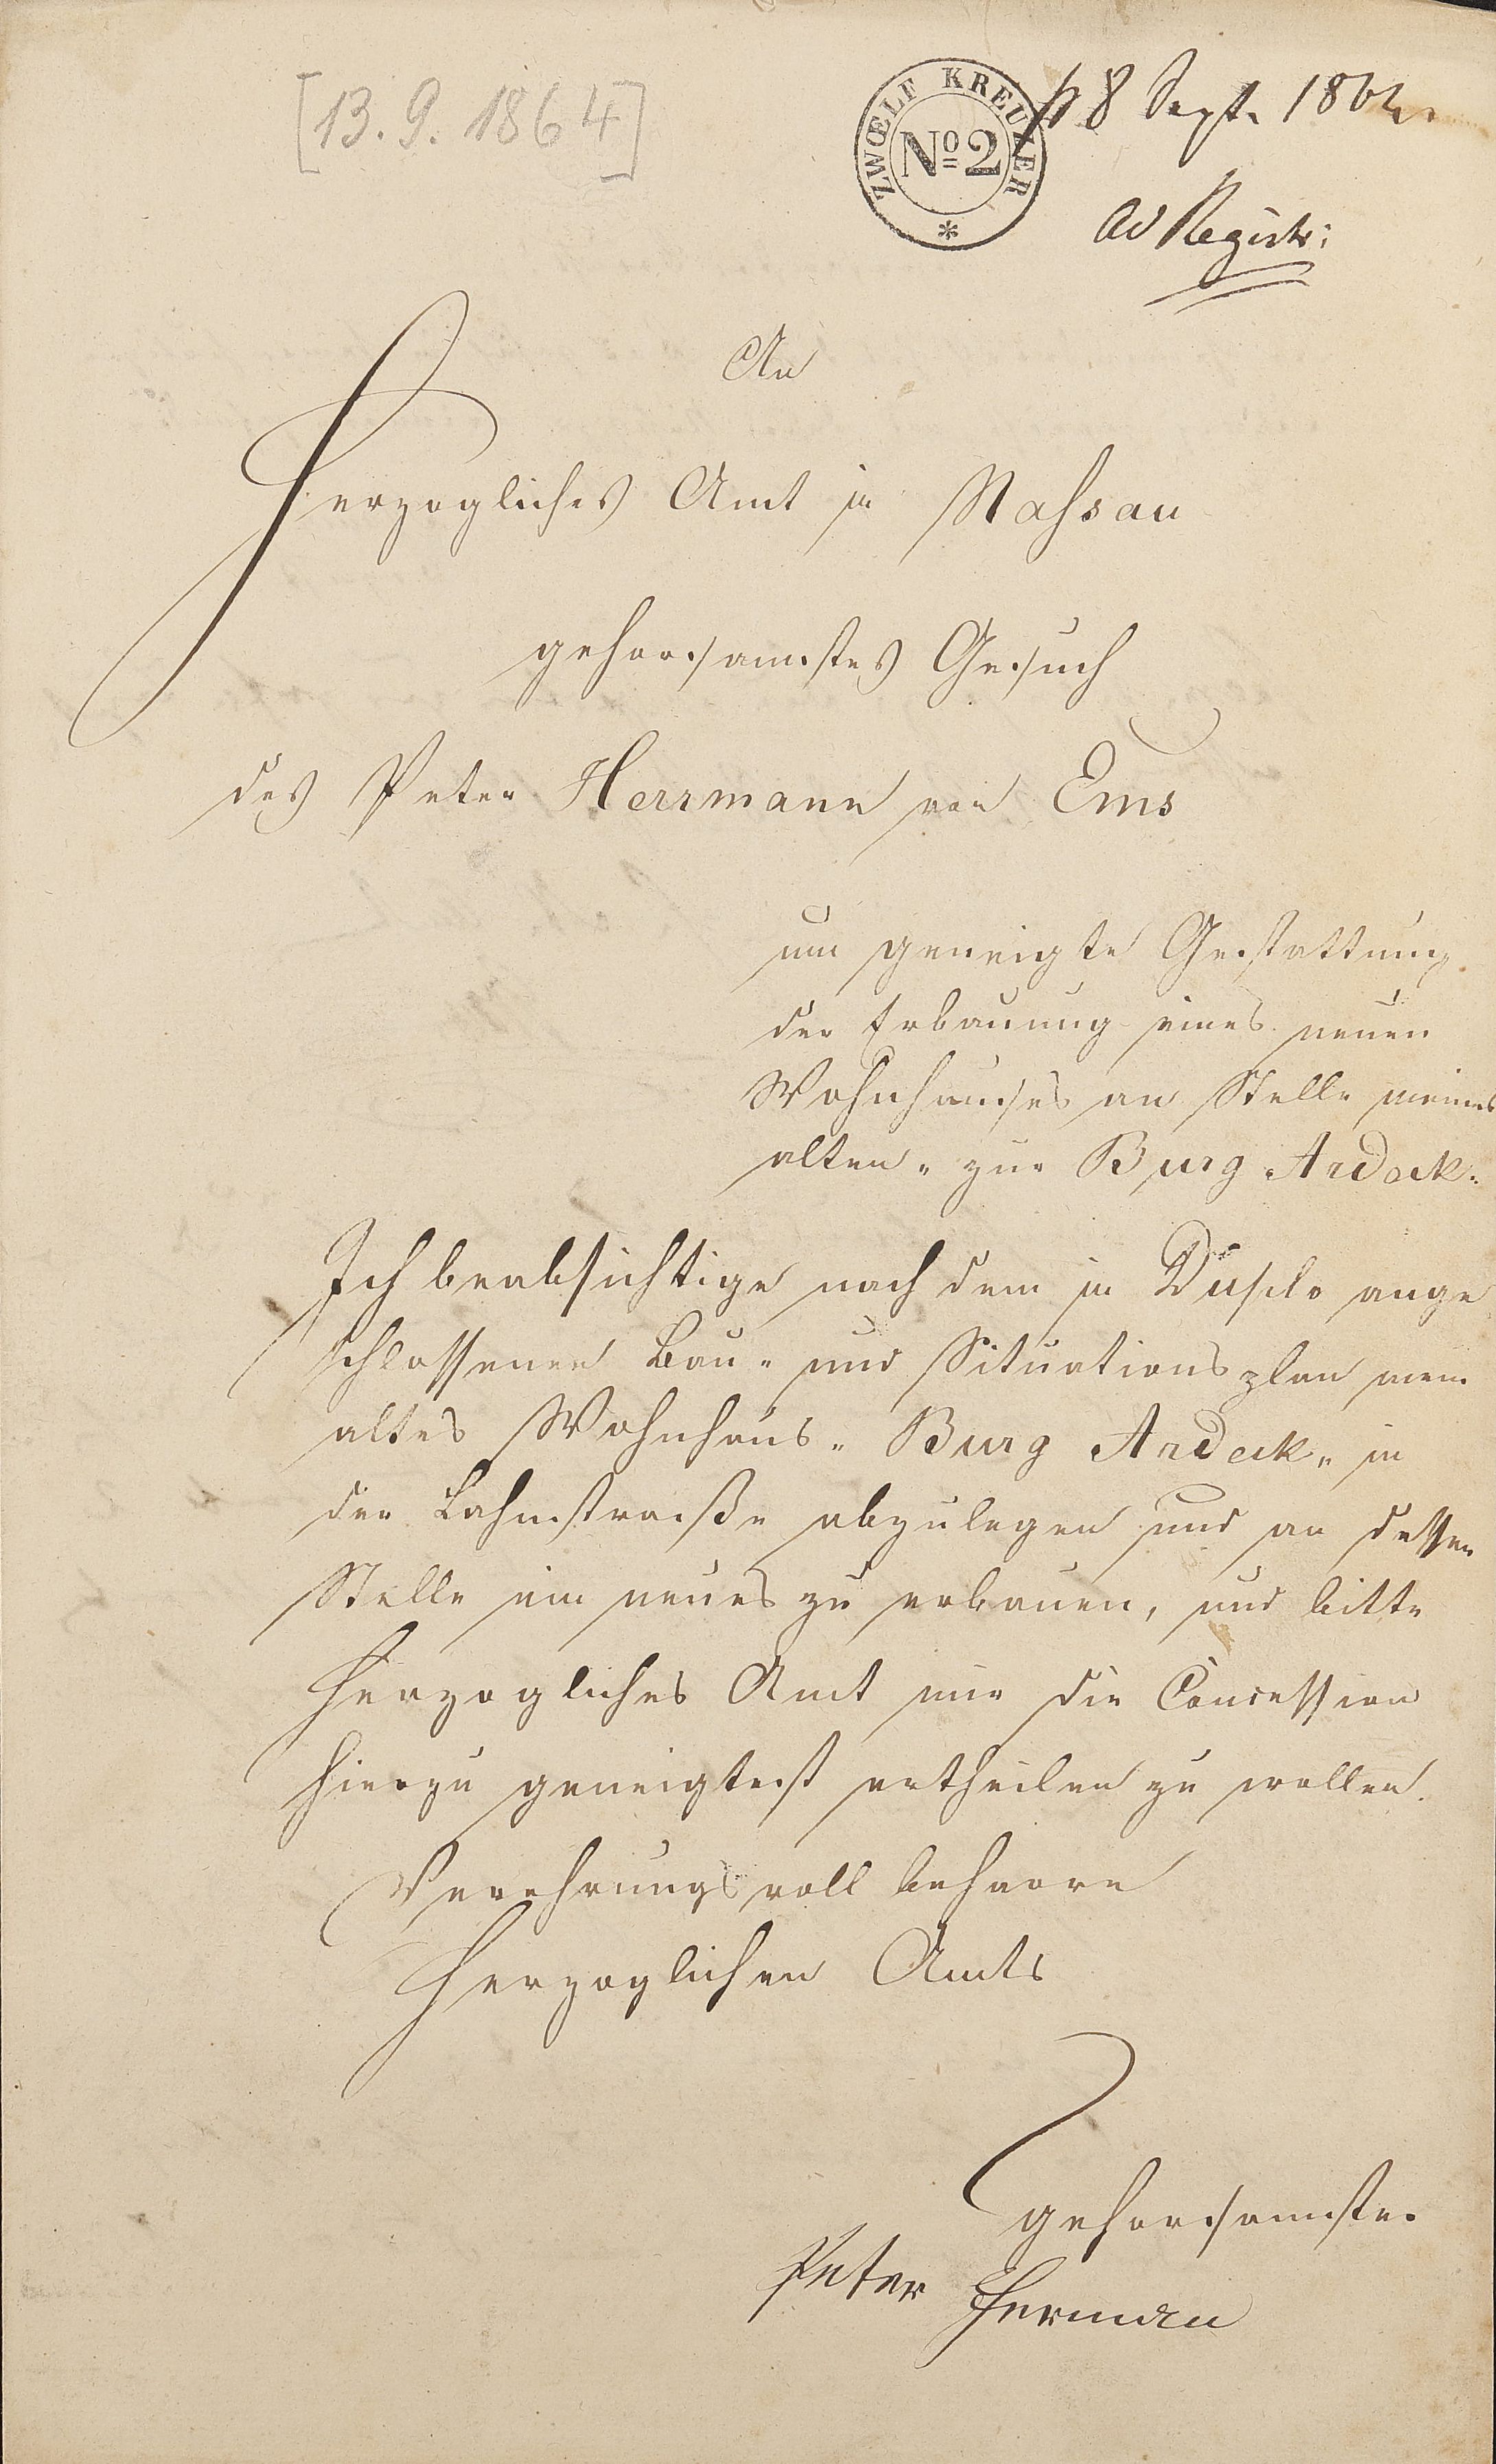 [13. 9. 1864]
ZWŒLF KREUZER
No 2
p 8 Sept. 1864.
ad Registr:
An
Herzogliches Amt in Nassau
gehorsamstes Gesuch
des Peter Herrmann von Ems
um geneigte Gestattung
der Erbauung eines neuen
Wohnhauses an Stelle meines
alten „zur Burg Ardeck"
Ich beabsichtige nach dem in Duplo ange
schlossenen Bau- und Situationsplan mein
altes Wohnhaus „Burg Ardeck" in
der Lahnstraße abzulegen und an dessen
Stelle ein neues zu erbauen, und bitte
Herzogliches Amt mir die Concession
hierzu geneigtest ertheilen zu wollen.
Verehrungsvoll beharre
Herzoglichen Amts
gehorsamster
Peter Herman